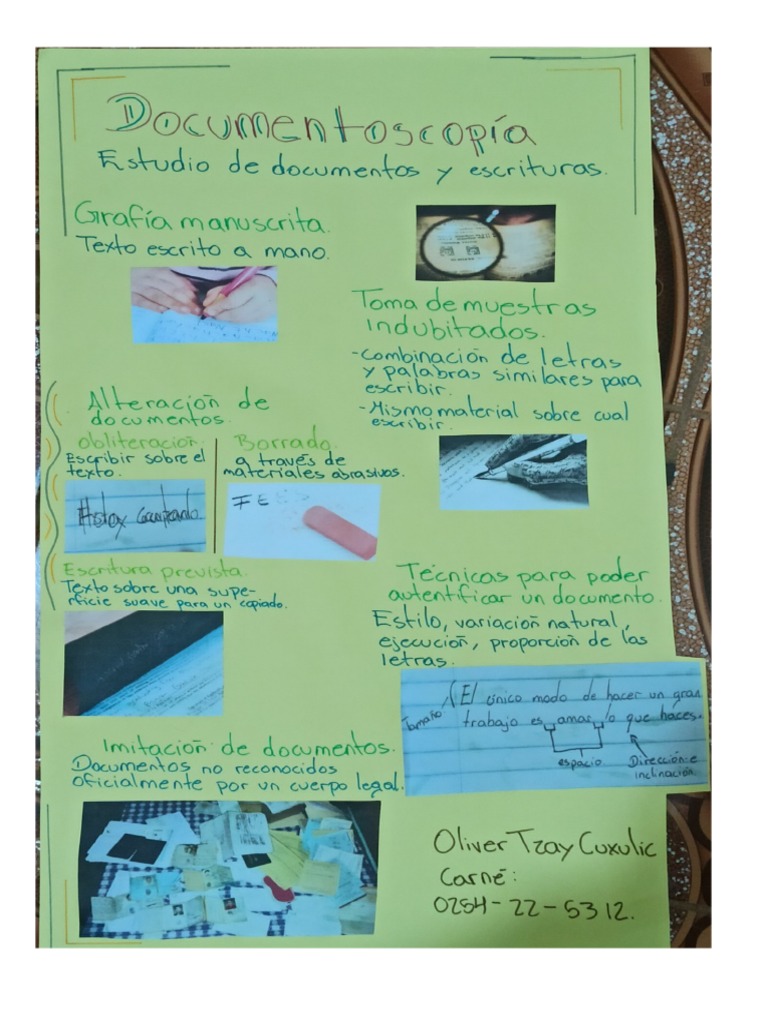 Documentoscopía
Estudio de documentos y escrituras.
Grafía manuscrita.
Texto escrito a mano.
Toma de muestras
indubitados.
-Combinación de letras
y palabras similares para
escribir.
-Mismo material sobre cual
escribir.
Alteración de
documentos.
obliteración.
Escribir sobre el
texto.
Borrado.
a través de
materiales abrasivos.
Estoy
F E
Escritura prevista.
Texto sobre una supe-
rficie suave para un copiado.
Técnicas para poder
autentificar un documento.
Estilo, variación natural,
ejecución, proporción de las
letras.
Tamaño
El único modo de hacer un gran
trabajo es amar lo que haces.
espacio
Dirección e
inclinación.
Imitación de documentos.
Documentos no reconocidos
oficialmente por un cuerpo legal.
Oliver Tzay Cuxulic
Carné:
0254-22-5312.